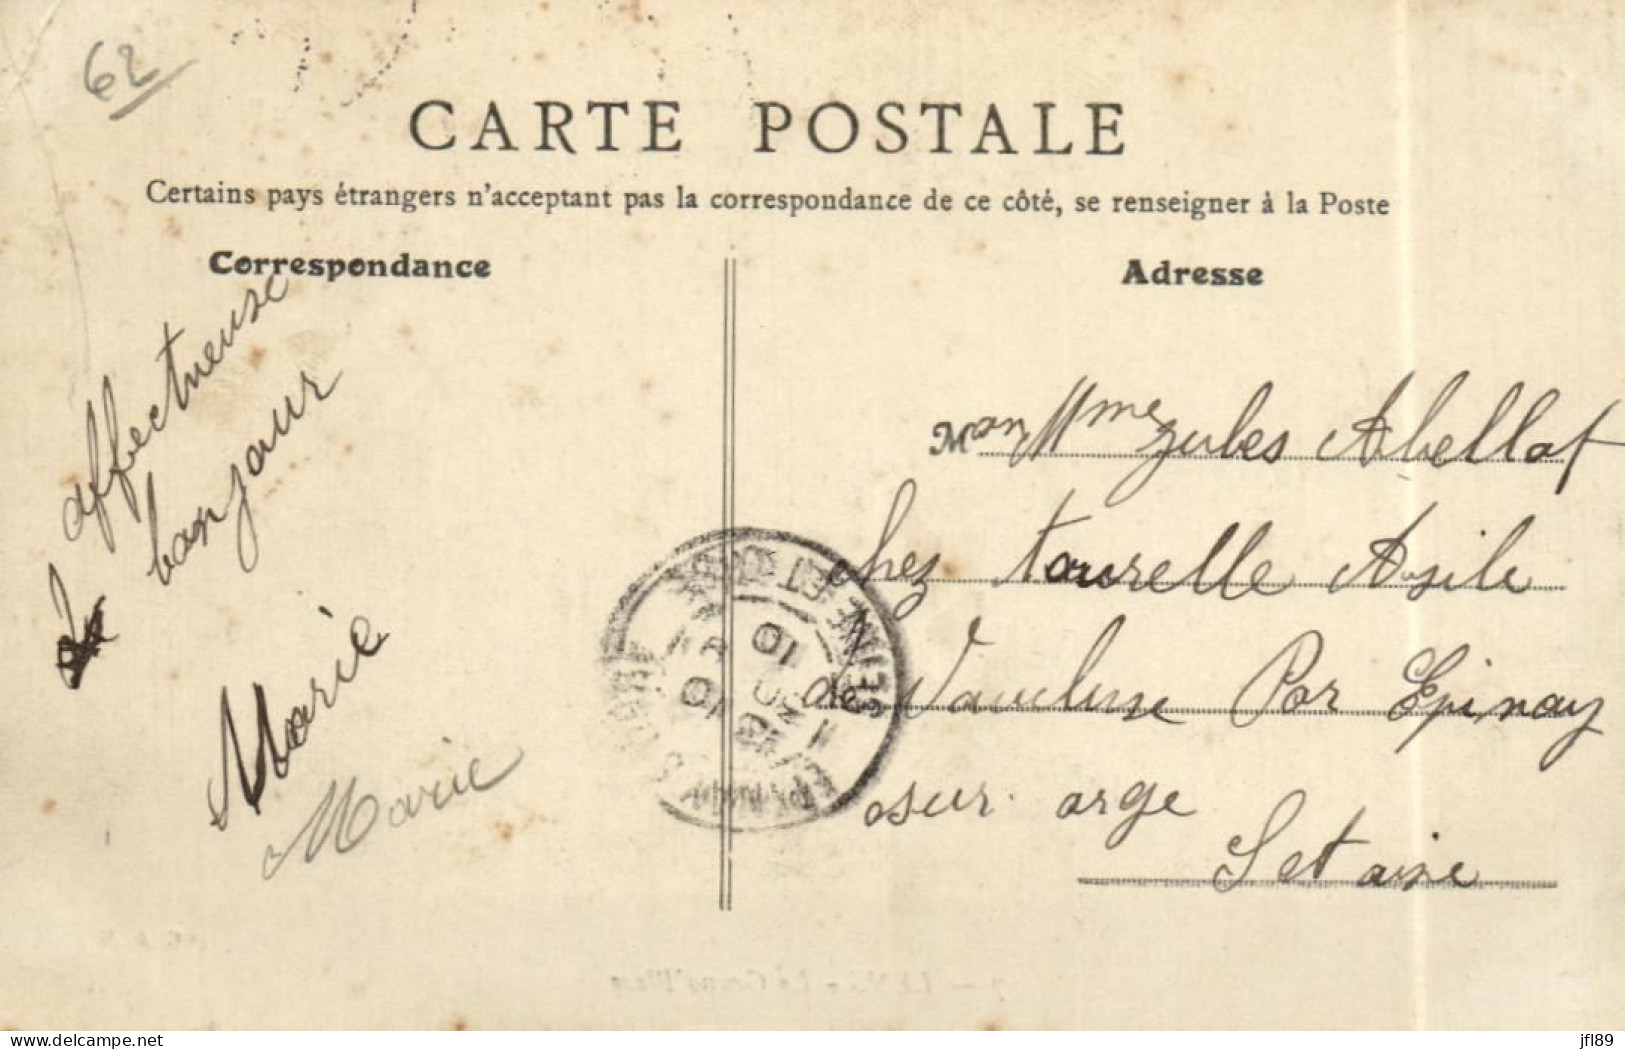 62
CARTE POSTALE
Certains pays étrangers n'acceptant pas la correspondance de ce côté, se renseigner à la Poste
Correspondance
affectueuse
bonjour
Marie
Marie
Adresse
Mon Mme Jules Abellaf
chez tourelle Asile
de Vaucluse Par Epinay
sur orge
Set aise
SEINE ET OISE
delcampe.net
jfl89